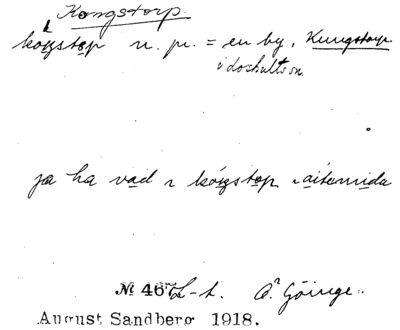 Kongstorp.
kóŋstop n. pr. = en by, Kungstorp
i Loshults sn.
ja ha vad i kóŋstop i
№ 467 L-t. Ö. Göinge.
August Sandberg 1918.